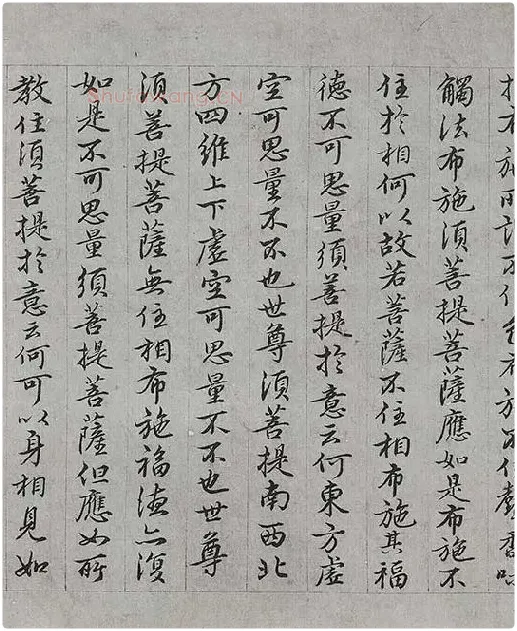 觸法布施須菩提菩薩應如是布施不
住於相何以故若菩薩不住相布施其福
德不可思量須菩提於意云何東方虛
空可思量不不也世尊須菩提南西北
方四維上下虛空可思量不不也世尊
須菩提菩薩無住相布施福德亦復
如是不可思量須菩提菩薩但應如所
教住須菩提於意云何可以身相見如